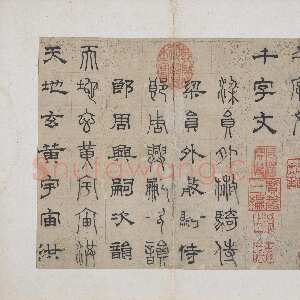 千字文
千字文
梁員外散騎侍
梁員外散騎侍
郎周興嗣次韻
郎周興嗣次韻
天地玄黃宇宙洪
天地玄黃宇宙洪